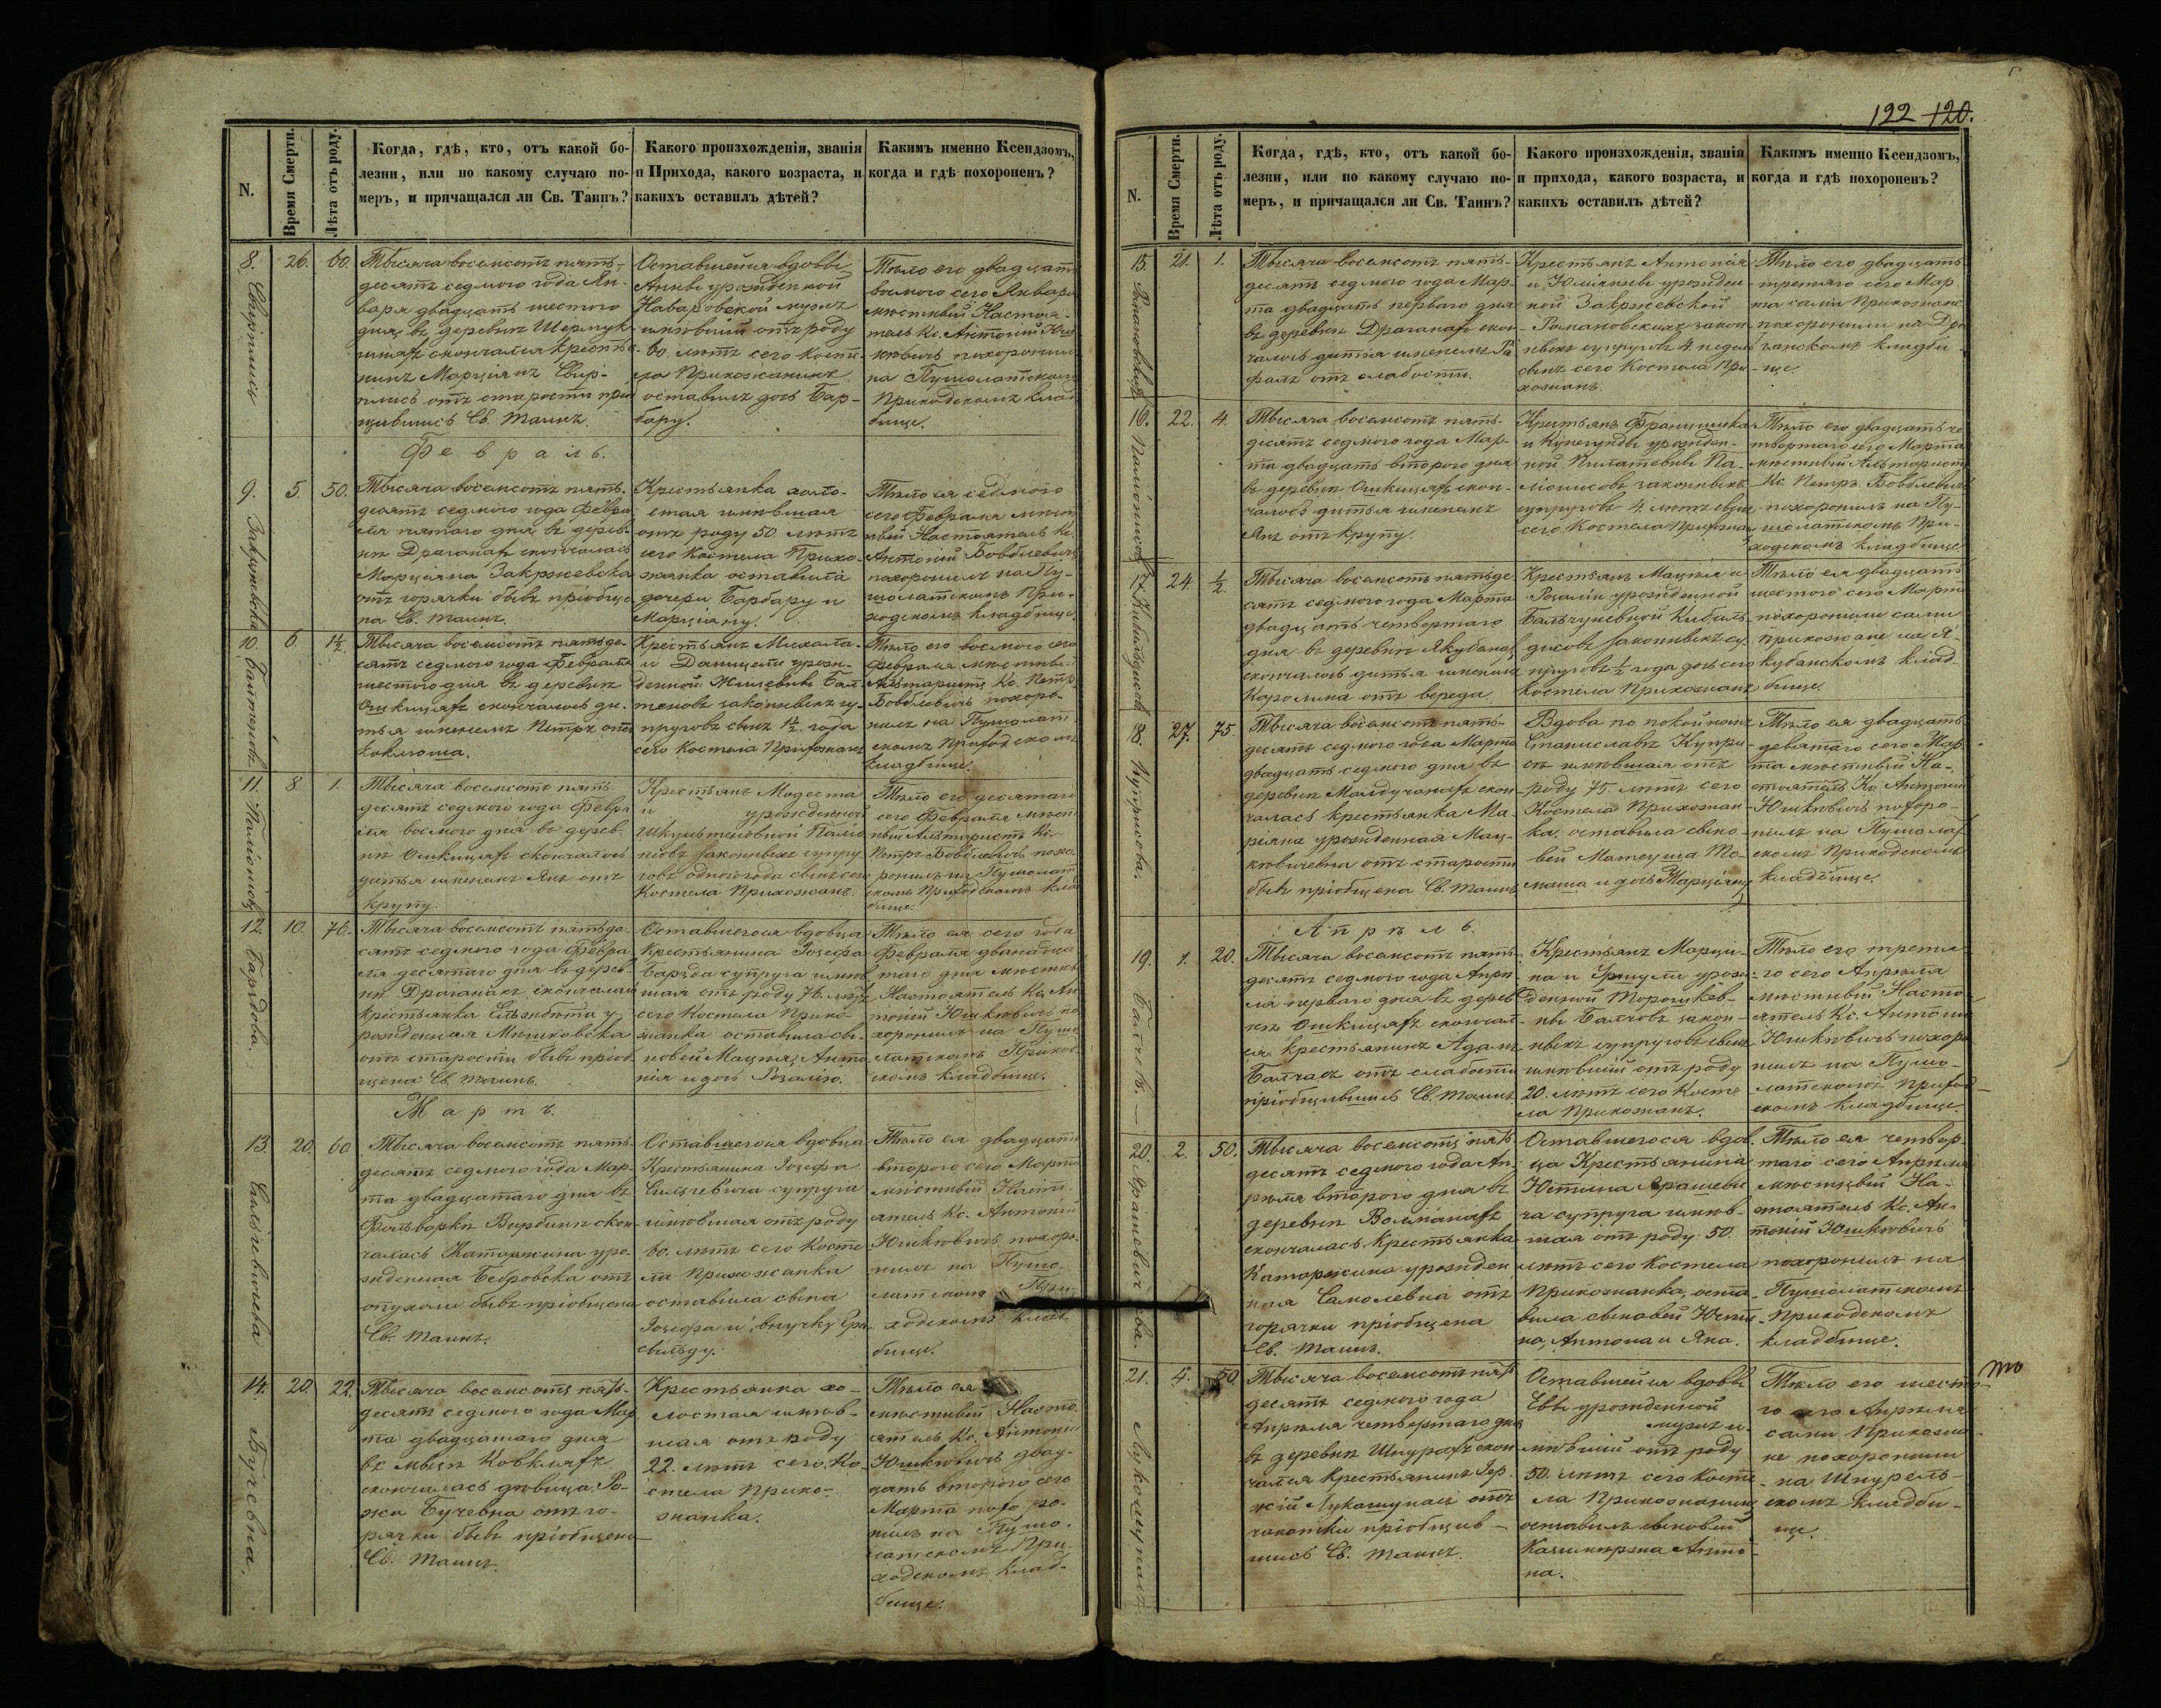 122 120.
N.
Время Смерти.
Лѣта отъ роду.
Когда, гдѣ, кто, отъ какой бо-
лезни, или по какому случаю по-
меръ, и причащался ли Св. Таинъ?
Какого произхожденія, званія
и Прихода, какого возраста, и
какихъ оставилъ дѣтей?
Какимъ именно Ксендзомъ,
когда и гдѣ похороненъ?
8.
26.
60.
Тысяча восемсотъ пять-
десятъ седмого года Ян-
варя двадцать шестого
дня, въ деревнѣ
скончался крестья-
нинъ Марціянъ Свир-
плисъ отъ старости прі
щившись Св. Таинъ.
Оставшейся вдовы
Анны урожденной
мужъ
имѣвшій отъ роду
60. лѣтъ сего Косте-
ла Прихожанинъ
оставилъ дочь Бар-
бару.
Тѣло его двадцать
восмого сего Января
мѣстный Настоя-
тель Кс. Антоній Юш
кѣвичъ похоронилъ
на Пушолатскомъ
Приходскомъ клад
бище.
Февраль.
9.
5.
50.
Тысяча восемсотъ пять-
десятъ седмого года Февра
ля пятаго дня въ дерев-
нѣ Драганахъ скончалась
Марціяна Закржевска
отъ горячки бывъ пріобще
на Св. Таинъ.
Крестьянка холо-
стая имѣвшая
отъ роду 50. лѣтъ
сего Костела Прихо-
жанка оставила
дочери Барбару и
Марціяну.
Тѣло ея седмого
сего Февраля мѣст
ный Настоятель Кс.
Антоній
похоронилъ на Пу-
шолатскомъ При-
ходскомъ кладбище.
10.
6.
1½.
Тысяча восемсотъ пятьде-
сятъ седмого года Февраля
шестого дня въ деревнѣ
Ошкицяхъ скончалось ди-
тья именемъ Петръ отъ
коклюша.
Крестьянъ Михала
и Даніцели урож-
денной
законныхъ су-
пруговъ сынъ 1½ года
сего Костела Прихожанъ
Тѣло его восмого сего
Февраля мѣстный
Альтаристъ Кс. Петръ
Бовблевичъ похоро-
нилъ на Пушолат
скомъ Приходскомъ
кладбище.
11.
8.
1.
Тысяча восемсотъ пять-
десятъ седмого года Февра
ля восмого дня въ дерев-
нѣ Ошкицяхъ скончалось
дитья именемъ Янъ отъ
крупу.
Крестьянъ Модеста
и урожденной
Паліо
нисовъ законныхъ супру
говъ одного года сынъ сего
Костела Прихожанъ.
Тѣло его десятаго
сего Февраля мѣст
ный Альтаристъ Кс.
Петръ Бовблевичъ похо
ронилъ на Пушолат
скомъ Приходскомъ клад
бище.
12.
10.
76.
Бардова.
Тысяча восемсотъ пятьде-
сятъ седмого года Февра
ля десятаго дня въ дерев-
нѣ Драганахъ скончалась
крестьянка Ельжбѣта у-
рожденная Мѣшковска
отъ старости бывъ пріоб
щена Св. Таинъ.
Оставшегося вдовца
Крестьянина Іозефа
Барда супруга имѣв
шая отъ роду 76. лѣтъ
сего Костела Прихо-
жанка оставила сы-
новей Мацѣя, Анто
нія и дочь Розалію.
Тѣло ея сего года
Февраля дванадца
таго дня мѣстный
Настоятель Кс. Ан
тоній Юшкѣвичъ по
хоронилъ на Пушо
латскомъ Приход
скомъ кладбище.
Мартъ.
13.
20.
60.
Тысяча восемсотъ пять-
десятъ седмого года Мар-
та двадцатаго дня въ
Фольваркѣ Вирбинѣ скон-
чалась Катаржина уро-
жденная Бобровска отъ
опухоли бывъ пріобщена
Св. Таинъ.
Оставшегося вдовца
Крестьянина Іозефа
супруга
имѣвшая отъ роду
60. лѣтъ сего Косте
ла Прихожанка
оставила сына
Іозефа и внучку Гра
сильду.
Тѣло ея двадцать
второго сего Марта
мѣстный Насто
ятель Кс. Антоній
Юшкѣвичъ похоро-
нилъ на Пушо-
латскомъ При-
ходскомъ клад
бище.
14.
20.
22.
Бучевна.
Тысяча восемсотъ пять-
десятъ седмого года Мар
та двадцатаго дня
въ мызѣ Ковкляхъ
скончалась дѣвица Ро-
жа Бучевна отъ го-
рячки бывъ пріобщена
Св. Таинъ.
Крестьянка хо-
лостая имѣв-
шая отъ роду
22. лѣтъ сего Ко-
стела Прихо-
жанка.
Тѣло ея
мѣстный Насто
ятель Кс. Антоній
Юшкѣвичъ двад-
цать второго сего
Марта похоро-
нилъ на Пушо-
латскомъ При-
ходскомъ клад-
бище.
N.
Время Смерти.
Лѣта отъ роду.
Когда, гдѣ, кто, отъ какой бо-
лезни, или по какому случаю по-
меръ, и причащался ли Св. Таинъ?
Какого произхожденія, званія
и прихода, какого возраста, и
какихъ оставилъ дѣтей?
Какимъ именно Ксендзомъ,
когда и гдѣ похороненъ?
15.
21.
1.
Тысяча восемсотъ пять-
десятъ седмого года Мар-
та двадцать перваго дня
въ деревнѣ Драганахъ скон-
чалось дитья именемъ Ра
фалъ отъ слабости.
Крестьянъ Антонія
и Юліянны урожден
ной Закржевской
Романовскихъ закон
ныхъ супруговъ 4 недели
сынъ сего Костела При
хожанъ.
Тѣло его двадцать
третяго сего Мар
та сами Прихожане
похоронили на Дра
ганскомъ кладби-
ще.
16.
22.
4.
Тысяча восемсотъ пять-
десятъ седмого года Мар-
та двадцать второго дня
въ деревнѣ Ошкицяхъ скон-
чалось дитья именемъ
Янъ отъ крупу.
Крестьянъ Францишка
и Кунегунды урожден-
ной Пилатевны Па-
ліонисовъ законныхъ
супруговъ 4. лѣтъ сынъ
сего Костела Прихожанъ
Тѣло его двадцать че
твертаго сего Марта
мѣстный Альтаристъ
Кс. Петръ Бовблевичъ
похоронилъ на Пу-
шолатскомъ При-
ходскомъ кладбище.
17.
24.
½.
Тысяча восемсотъ пятьде
сятъ седмого года Марта
двадцать четвертаго
дня въ деревнѣ Якубанцѣ
скончалось дитья именемъ
Каролина отъ вереда.
Крестьянъ Мацѣя и
Розаліи урожденной
Бальчуневной Кибиль-
дисовъ законныхъ су-
пруговъ ½ года дочь сего
Костела Прихожанъ
Тѣло ея двадцать
шестого сего Марта
похоронили сами
прихожане на Я-
кубанскомъ клад-
бище.
18.
27.
75.
Куприсова.
Тысяча восемсотъ пять-
десятъ седмого года Марта
двадцать седмого дня въ
деревнѣ Малдучанахъ скон-
чалась крестьянка Ма-
ріяна урожденная Мац-
кѣвичевна отъ старости
бывъ пріобщена Св. Таинъ
Вдова по покойномъ
Станиславѣ Купри
сѣ имѣвшая отъ
роду 75. лѣтъ сего
Костела Прихожан-
ка. оставила сыно-
вей Матеуша То-
маша и дочь Марціяну
Тѣло ея двадцать
девятаго сего Мар
та мѣстный На-
стоятель Кс. Антоній
Юшкѣвичъ похоро-
нилъ на Пушолат
скомъ Приходскомъ
кладбище.
Апрѣль.
19.
1.
20.
Тысяча восемсотъ пять-
десятъ седмого года Апрѣ
ля перваго дня въ дерев
нѣ Ошкицяхъ скончал-
ся крестьянинъ Адамъ
Балчасъ отъ слабости
пріобщившись Св. Таинъ
Крестьянъ Марци-
на и Уршули урож-
денной Торошкѣв-
ны Балчовъ закон-
ныхъ супруговъ сынъ
имѣвшій отъ роду
20. лѣтъ сего Косте
ла Прихожанъ.
Тѣло его третя-
го сего Апрѣля
мѣстный Насто-
ятель Кс. Антоній
Юшкѣвичъ похоро
нилъ на Пушо-
латскомъ Приход
скомъ кладбище.
20.
2.
50.
Тысяча восемсотъ пять
десятъ седмого года Ап
рѣля второго дня въ
деревнѣ Волманахъ
скончалась Крестьянка
Катаржина урожден
ная отъ
горячки пріобщена
Св. Таинъ.
Оставшегося вдов-
ца Крестьянина
Юстина Ярашеви
ча супруга имѣв-
шая отъ роду 50.
лѣтъ сего Костела
Прихожанка, оста-
вила сыновей Юсти
на, Антона и Яна.
Тѣло ея четвер-
таго сего Апрѣля
мѣстный На-
стоятель Кс. Ан-
тоній Юшкѣвичъ
похоронилъ на
Пушолатскомъ
Приходскомъ
кладбище.
21.
4.
50.
Тысяча восемсотъ пять
десятъ седмого года
Апрѣля четвертаго дня
въ деревнѣ Шнурахъ скон
чался Крестьянинъ Іер-
жій Лукашунасъ отъ
чахотки пріобщив-
шись Св. Таинъ.
Оставшейся вдовы
Евы урожденной
мужъ и-
мѣвшій отъ роду
50. лѣтъ сего Косте
ла Прихожанинъ
оставилъ сыновей
Казимѣржа Анто-
на.
Тѣло его шесто
го сего Апрѣля
сами Прихожа
не похоронили
на Шнурель-
скомъ кладби-
ще.
то